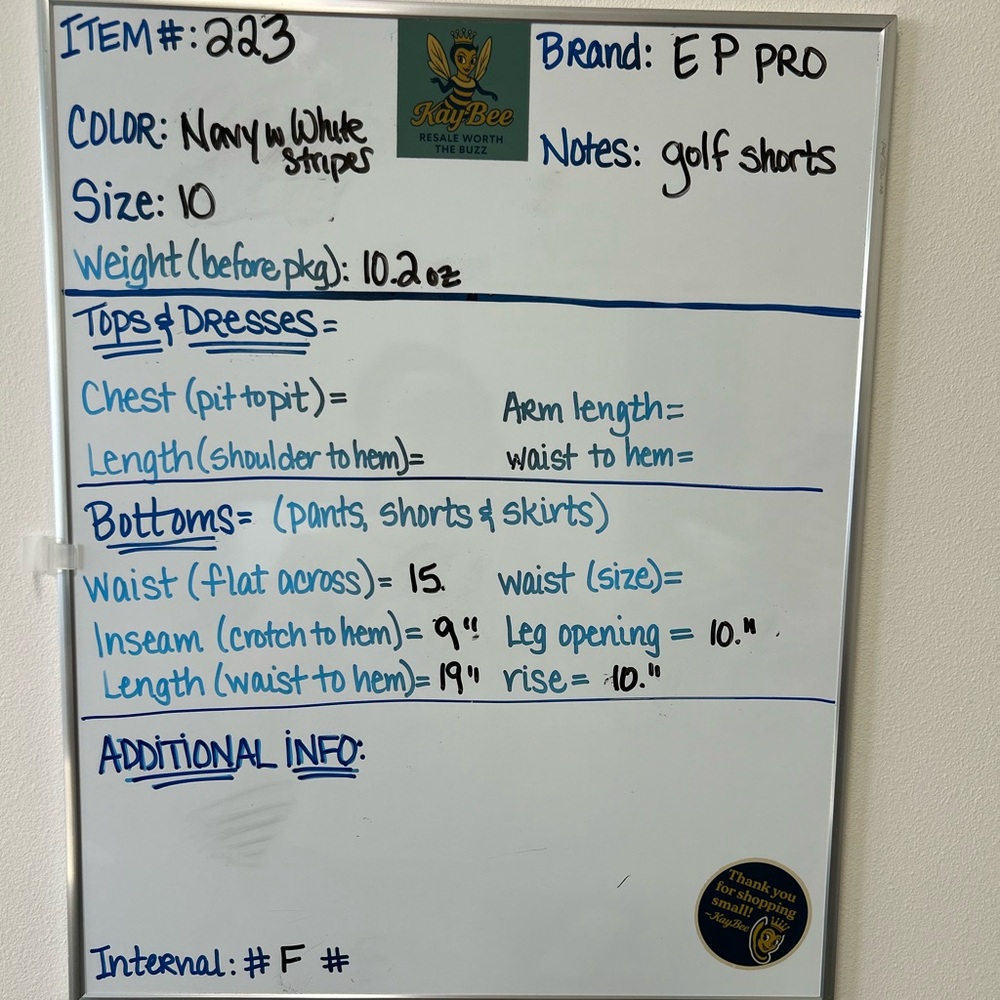 ITEM#: 223
Brand: E P PRO
KayBee
RESALE WORTH
THE BUZZ
COLOR: Navy w White
stripes
Notes: golf shorts
Size: 10
Weight (before pkg): 10.2 oz
TOPS & DRESSES =
Chest (pit to pit) =
ARM length =
Length (shoulder to hem) =
waist to hem =
Bottoms = (pants, shorts & skirts)
Waist (flat across) = 15.
waist (size) =
Inseam (crotch to hem) = 9"
Leg opening = 10."
Length (waist to hem) = 19"
rise = 10."
ADDITIONAL INFO:
Thank you
for shopping
small!
~KayBee
Internal: # F #